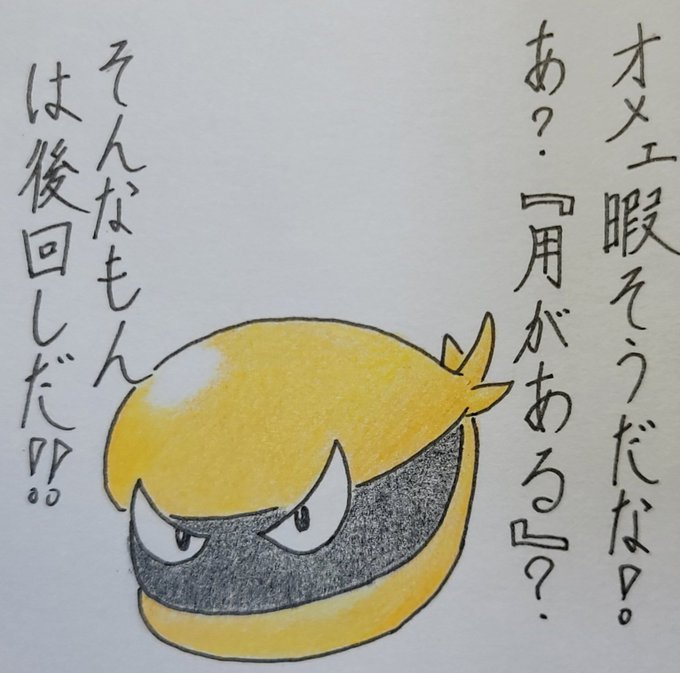 オメェ暇そうだな!
あ?『用がある』?
そんなもん
は後回しだ!!